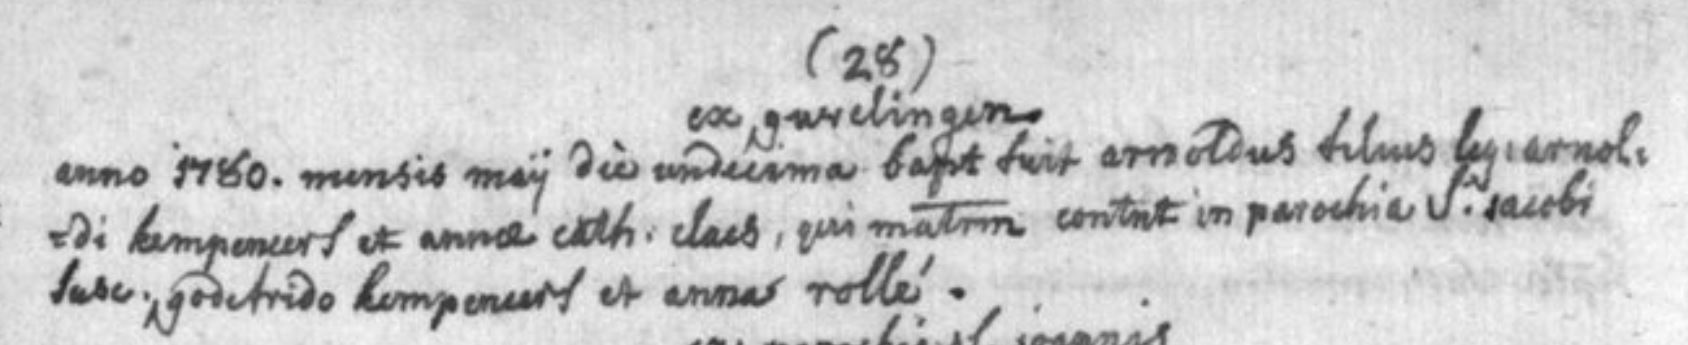 (28)
ex guvelingen
anno 1780. mensis maij die undecima bapt fuit arnoldus filius leg: arnol:
=di kempeneers et annæ cath. claes, qui matrm contrt in parochia S.ti jacobi
susc. godefrido kempeneers et anna rollé.
ex parochia S.ti joannis